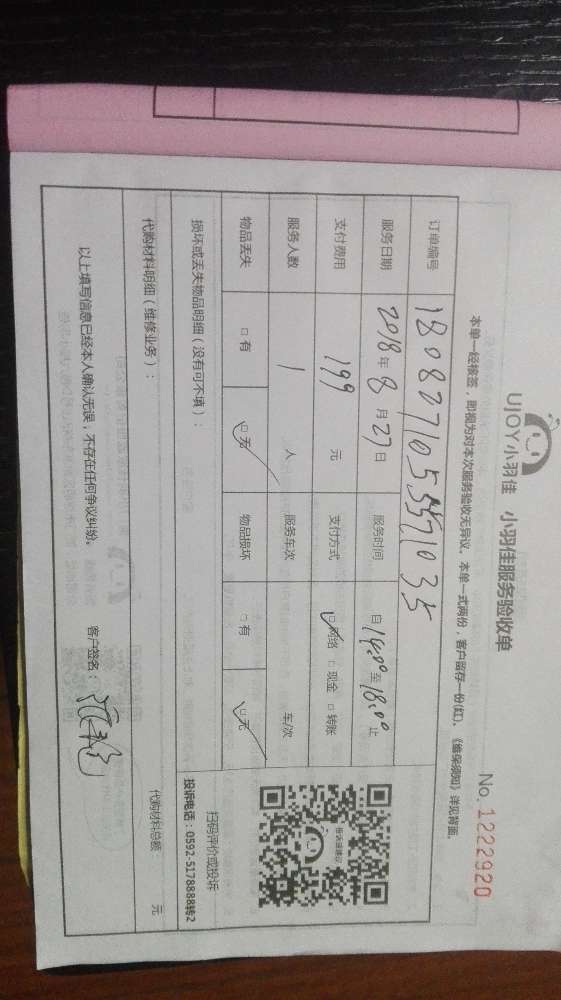 UJOY小羽佳 小羽佳服务验收单
No. 1222920
本单一经核签，即视为对本次服务验收无异议。本单一式两份，客户留存一份(红)，《维保须知》详见背面。
订单编号
服务日期 2018年8月27日 服务时间 自14:00至18:00止
支付费用 199 元 支付方式 ☑网络 □现金 □转账
服务人数 1 人 服务车次 车/次
物品丢失 □有 ☑无 物品损坏 □有 ☑无
扫码评价或投诉
投诉电话：0592-5178888转2
损坏或丢失物品明细（没有可不填）：
代购材料明细（维修业务）： 代购材料总额 元
以上填写信息已经本人确认无误，不存在任何争议纠纷。
客户签名：